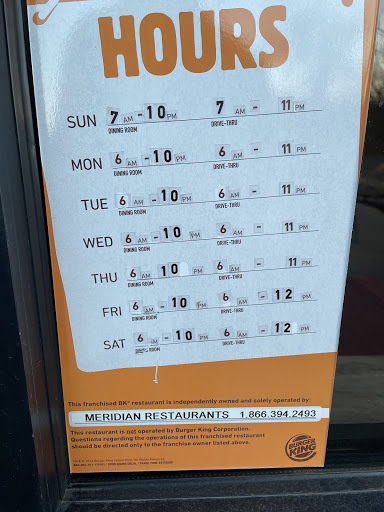 HOURS
SUN 7 AM - 10 PM 7 AM - 11 PM
DINING ROOM DRIVE-THRU
MON 6 AM - 10 PM 6 AM - 11 PM
DINING ROOM DRIVE-THRU
TUE 6 AM - 10 PM 6 AM - 11 PM
DINING ROOM DRIVE-THRU
WED 6 AM - 10 PM 6 AM - 11 PM
DINING ROOM DRIVE-THRU
THU 6 AM 10 PM 6 AM - 11 PM
DINING ROOM DRIVE-THRU
FRI 6 AM - 10 PM 6 AM - 12 PM
DINING ROOM DRIVE-THRU
SAT 6 AM - 10 PM 6 AM - 12 PM
DINING ROOM DRIVE-THRU
This franchised BK® restaurant is independently owned and solely operated by:
MERIDIAN RESTAURANTS 1.866.394.2493
This restaurant is not operated by Burger King Corporation.
Questions regarding the operations of this franchised restaurant
should be directed only to the franchise owner listed above.
BURGER KING